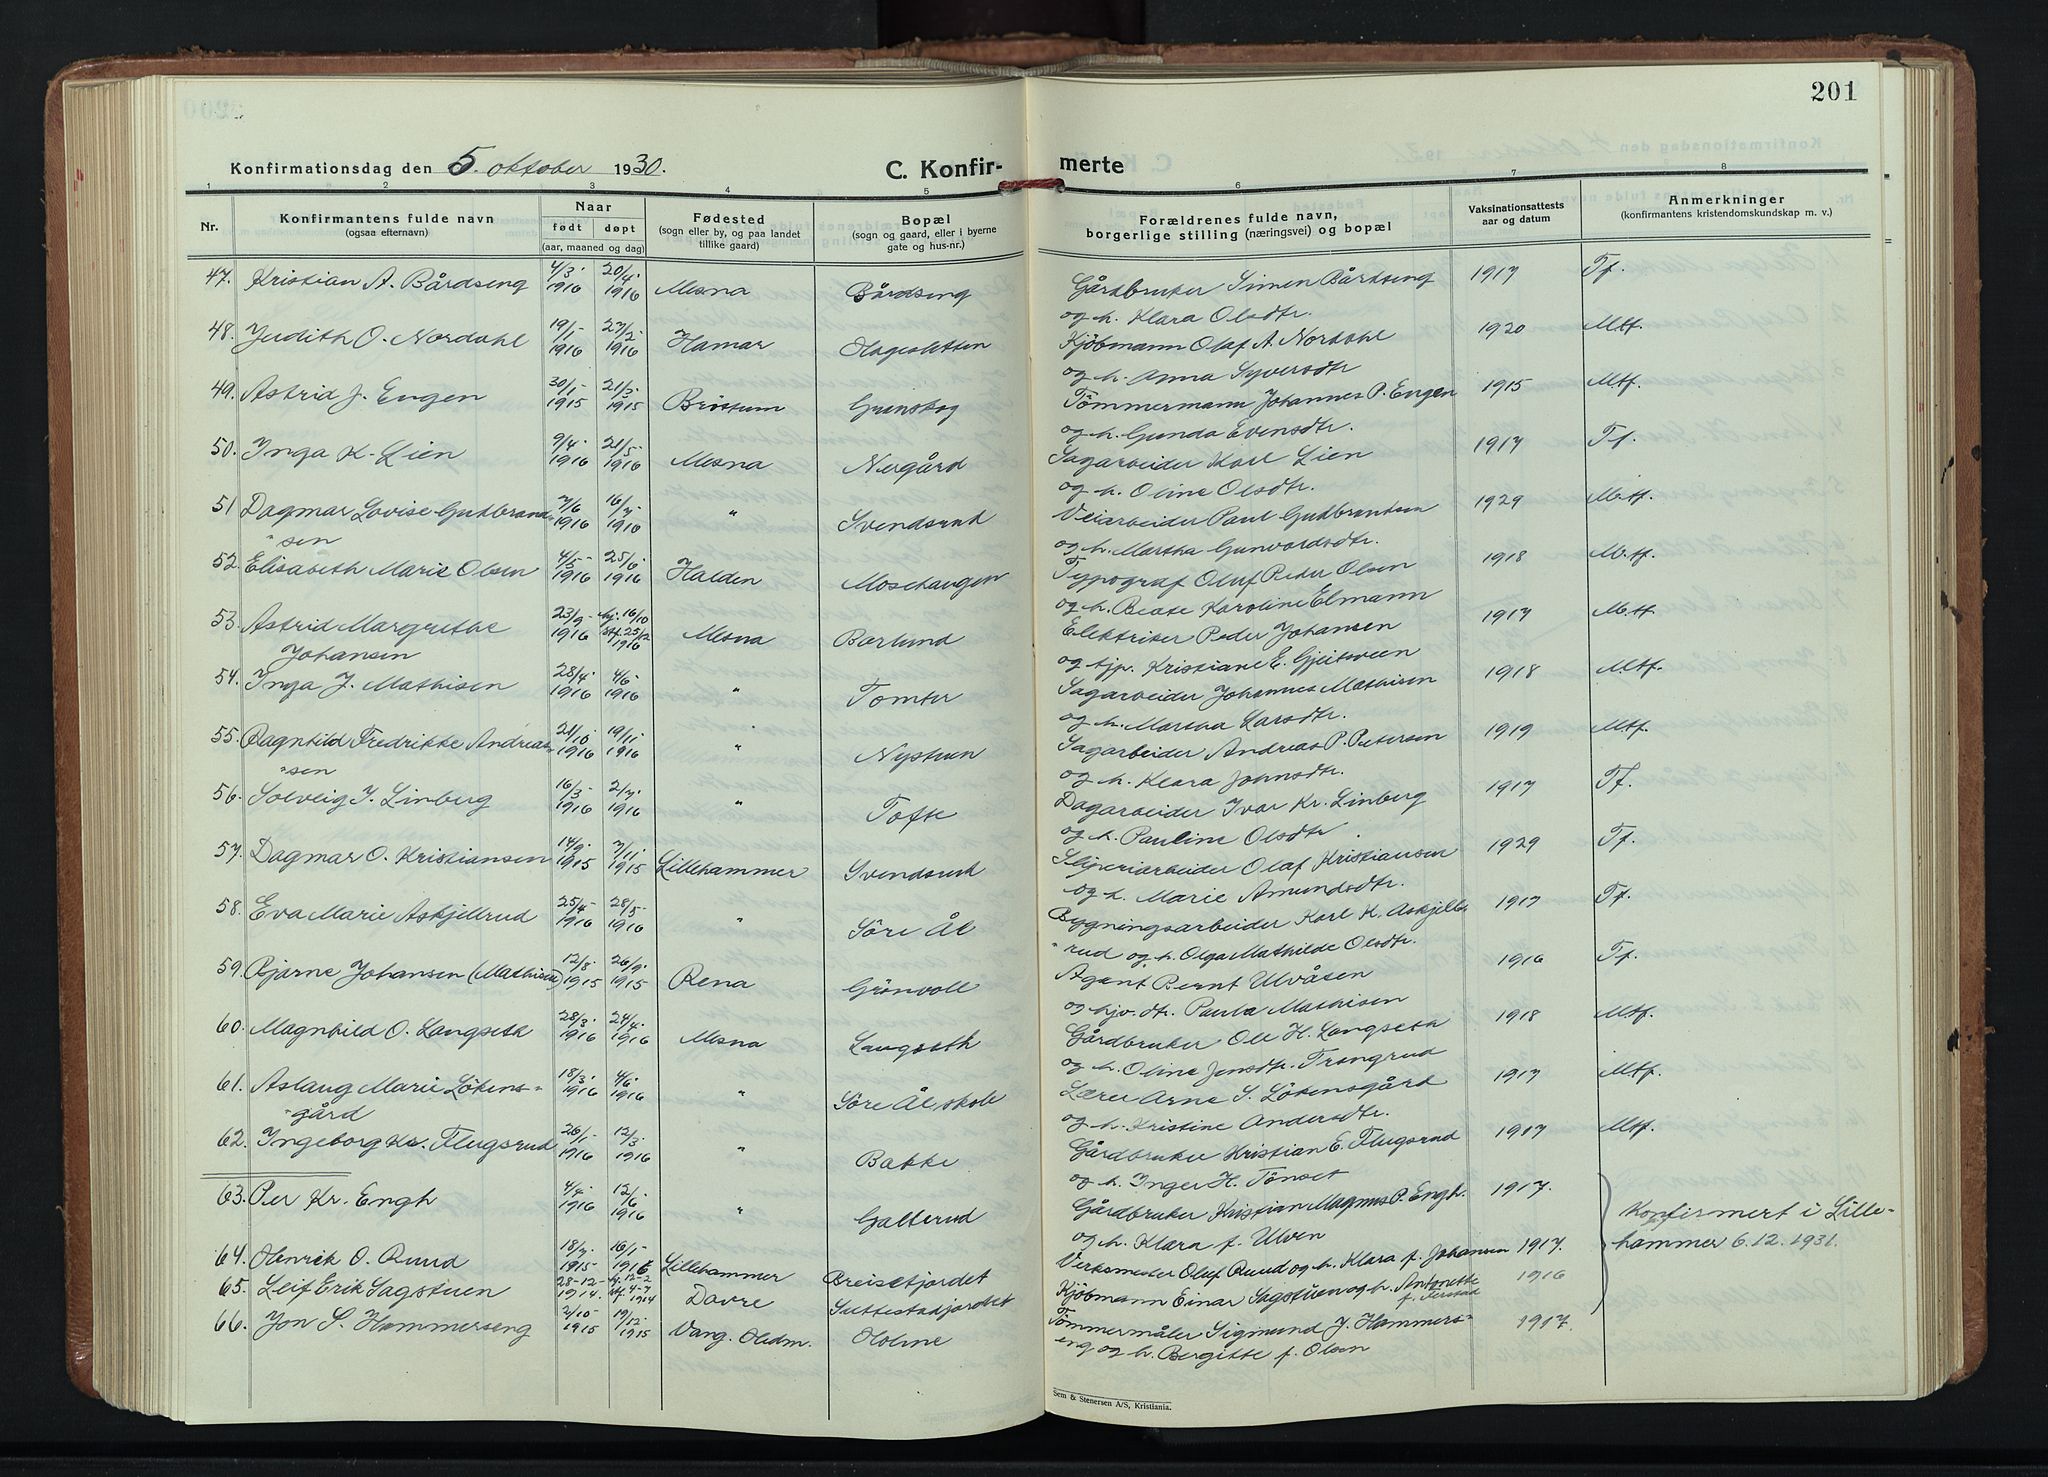 201
Konfirmationsdag den 5. oktober 1930.
C. Konfir-
merte
1 2 3 4 5 6 7 8
Nr.
Konfirmantens fulde navn
(ogsaa efternavn)
Naar
født
døpt
(aar, maaned og dag)
Fødested
(sogn eller by, og paa landet
tillike gaard)
Bopæl
(sogn og gaard, eller i byerne
gate og hus-nr.)
Forældrenes fulde navn,
borgerlige stilling (næringsvei) og bopæl
Vaksinationsattests
aar og datum
Anmerkninger
(konfirmantens kristendomskundskap m. v.)
47. Kristian A. Bårdseng 4/3- 1916 20/4- 1916 Mesna Bårdseng Gårdbruker Simen Bårdseng 1917 Tf.
og h. Klara Olsdtr.
48. Judith O. Nordahl 19/1- 1916 27/2- 1916 Hamar Hagesletten Kjöbmann Olaf A. Nordahl 1920 Mtf.
og h. Anna Syversdtr
49. Astrid J. Engen 30/1- 1915 21/3- 1915 Brøttum Grinskog Tömmermann Johannes P. Engen 1915 Mtf.
og h. Gunda Evensdtr.
50. Inga K. Lien 9/4- 1916 21/5- 1916 Mesna Nergård Sagarbeider Karl Lien 1917 Tf.
og h. Oline Olsdtr.
51 Dagmar Lovise Gudbrand- 7/6 1916 16/7- 1916 " Svendsrud Veiarbeider Paul Gudbrandsen 1929 Mtf.
"sen
og h. Martha Gunvardsdtr.
52. Elisabeth Marie Olsen 4/5- 1916 25/6- 1916 Halden Moschaugen Typograf Oluf Peder Olsen 1918 Mtf.
og h. Beate Karoline Elmann
53. Astrid Margrethe 23/9- 1916 hj. 16/10 stf. 25/12 1916 Mesna Bærlund Elektriker Peder Johansen 1917 Mtf.
Johansen
og tjp. Kristiane E. Gjeitsveen
54. Inga J. Mathisen 28/4- 1916 4/6- 1916 " Tomter Sagarbeider Johannes Mathisen 1918 Mtf.
og h. Martha Larsdtr.
55. Ragnhild Fredrikke Andreas- 21/10 1916 19/11- 1916 " Nystuen Sagarbeider Andreas P. Petersen 1919 Mtf.
"sen
og h. Klara Johnsdtr.
56. Solveig I. Linberg 16/3- 1916 2/7- 1916 " Tofte Dagarbeider Ivar Kr. Linberg 1917 Tf.
og h. Pauline Olsdtr.
57. Dagmar O. Kristiansen 14/9- 1915 7/11- 1915 Lillehammer Svendsrud Sliperiarbeider Olaf Kristiansen 1929 Tf.
og h. Marie Amundsdtr.
58. Eva Marie Askjellrud 25/4- 1916 28/5- 1916 " Söre Ål Bygningsarbeider Karl K. Askjell- 1917 Tf.
"rud og h. Olga Mathilde Olsdtr.
59. Bjarne Johansen (Mathisen) 12/8- 1915 26/9- 1915 Rena Grönvoll Agent Bernt Ulvåsen 1916 Tf.
og hjv. dtr. Paula Mathisen
60. Magnhild O. Langseth 28/3- 1916 24/4- 1916 Mesna Langseth Gårdbruker Ole H. Langseth 1918 Mtf.
og h. Oline Jensdtr. Trangrud
61. Aslaug Marie Lökens- 18/3- 1916 4/6- 1916 " Söre Ål skole Lærer Arne S. Lökensgård 1917 Mtf.
"gård
og h. Kristine Andersdtr.
62. Ingeborg Kr. Flugsrud 26/1- 1916 12/3- 1916 " Bakke Gårdbruker Kristian E. Flugsrud 1917 Mtf.
og h. Inger H. Tönset
63. Per Kr. Engh 4/4- 1916 12/6- 1916 " Galterud Gårdbruker Kristian Magnus P. Engh. 1917. Konfirmert i Lille-
og h. Klara f. Ulven
64. Henrik O. Ruud 18/7- 1915- 16/1- 1916 Lillehammer Breisetjordet Verksmester Oluf Ruud og h. Klara f. Johansen 1917. hammer 6.12.1931.
65. Leif Erik Sagstuen 28-12- 1914. hj. 12-2 stf. 4-7 1914 Dovre Suttestadjordet Kjöbmann Einar Sagstuen og h. Antonette 1916
66. Jon S. Hammerseng 2/10- 1915 19/12- 1915 Vang. Hedm. Holme Tömmermåler Sigmund J. Hammers- 1917.
eng og h. Bergitte f. Olsen
Sem & Stenersen A/S, Kristiania.